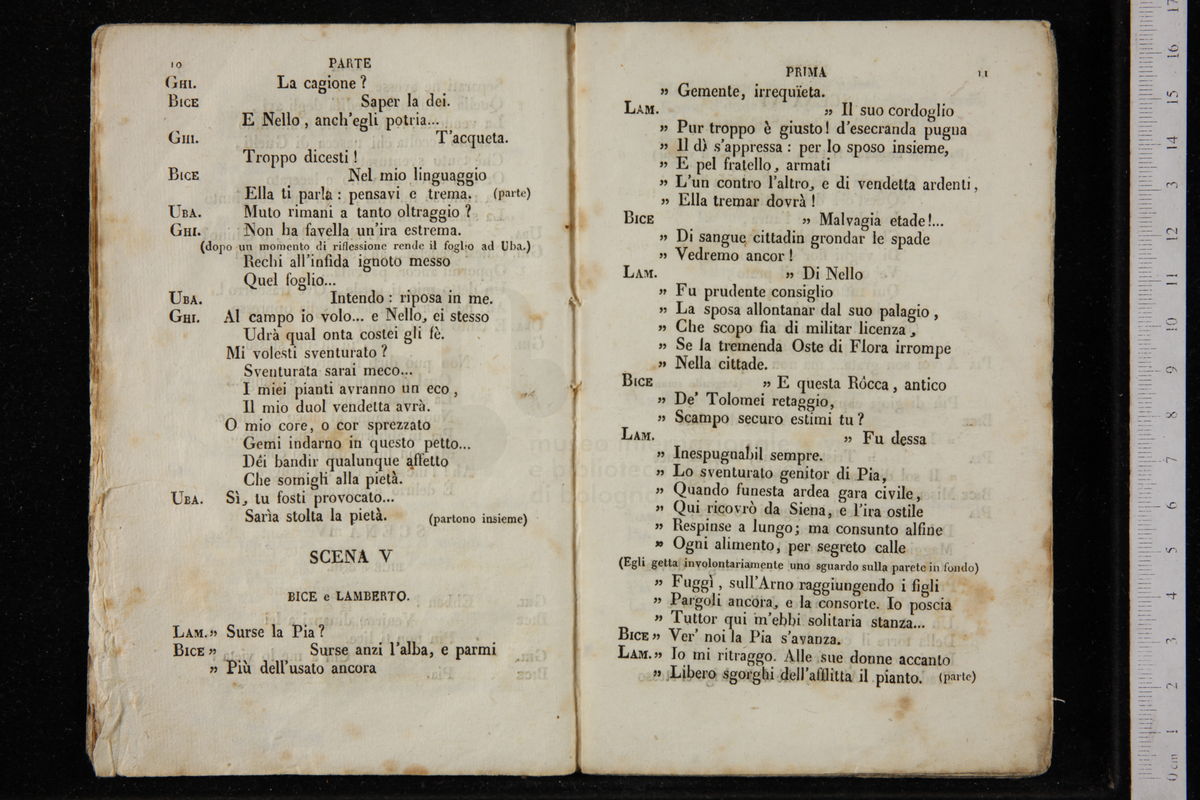 10 PARTE
GHI. La cagione ?
BICE Saper la dei.
E Nello , anch'egli potria...
GHI. T'acqueta.
Troppo dicesti !
BICE Nel mio linguaggio
Ella ti parla : pensavi e trema. (parte)
UBA. Muto rimani a tanto oltraggio ?
GHI. Non ha favella un'ira estrema.
(dopo un momento di riflessione rende il foglio ad Uba.)
Rechi all'infida ignoto messo
Quel foglio...
UBA. Intendo : riposa in me.
GHI. Al campo io volo... e Nello, ei stesso
Udrà qual onta costei gli fè.
Mi volesti sventurato ?
Sventurata sarai meco...
I miei pianti avranno un eco ,
Il mio duol vendetta avrà.
O mio core, o cor sprezzato
Gemi indarno in questo petto...
Déi bandir qualunque affetto
Che somigli alla pietà.
UBA. Sì, tu fosti provocato...
Sarìa stolta la pietà. (partono insieme)
SCENA V
BICE e LAMBERTO.
LAM. » Surse la Pia ?
BICE » Surse anzi l'alba, e parmi
» Più dell'usato ancora
PRIMA 11
» Gemente, irrequïeta.
LAM. » Il suo cordoglio
» Pur troppo è giusto! d'esecranda pugua
» Il dì s'appressa : per lo sposo insieme,
» E pel fratello, armati
» L'un contro l'altro, e di vendetta ardenti,
» Ella tremar dovrà !
BICE » Malvagia etade!...
» Di sangue cittadin grondar le spade
» Vedremo ancor !
LAM. » Di Nello
» Fu prudente consiglio
» La sposa allontanar dal suo palagio ,
» Che scopo fia di militar licenza ,
» Se la tremenda Oste di Flora irrompe
» Nella cittade.
BICE » E questa Rôcca, antico
» De' Tolomei retaggio,
» Scampo securo estimi tu ?
LAM. » Fu dessa
» Inespugnabil sempre.
» Lo sventurato genitor di Pia,
» Quando funesta ardea gara civile,
» Qui ricovrò da Siena, e l'ira ostile
» Respinse a lungo; ma consunto alfine
» Ogni alimento, per segreto calle
(Egli getta involontariamente uno sguardo sulla parete in fondo)
» Fuggì , sull'Arno raggiungendo i figli
» Pargoli ancora, e la consorte. Io poscia
» Tuttor qui m'ebbi solitaria stanza...
BICE » Ver' noi la Pia s'avanza.
LAM. » Io mi ritraggo. Alle sue donne accanto
» Libero sgorghi dell'afflitta il pianto. (parte)